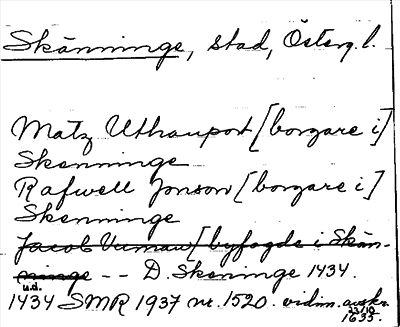 Skänninge, stad, Österg.l.
Matz Uthanport [borgare i]
Skenninge
Rafwell Jonson [borgare i]
Skenninge
Jacob Unman [byfogde i Skän-
ninge -- D. Skeninge 1434.
u.d.
1434 SMR 1937 nr. 1520. vidim. avskr.
23/10
1633.